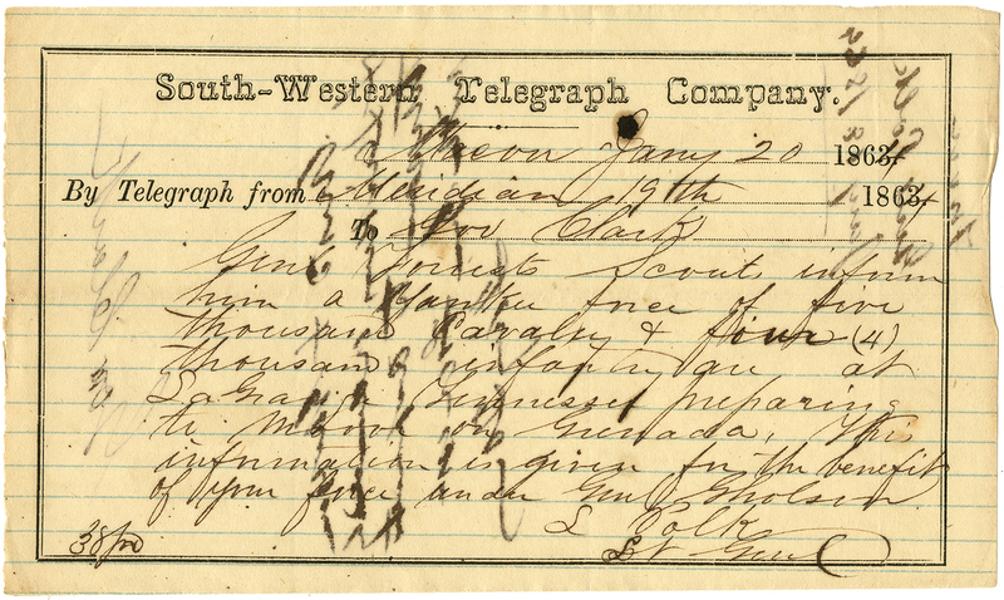 South-Western Telegraph Company.
Macon Jany 20 1864
By Telegraph from Meridian 19th 1864
To Gov Clark
Genl Forrests Scouts inform
him a Yankee force of five
thousand Cavalry & four (4)
thousand infantry are at
LaGrange Tennessee preparing
to move on Grenada, This
information is given for the benefit
of your force under Genl Gholson
L Polk
Lt Genl
38